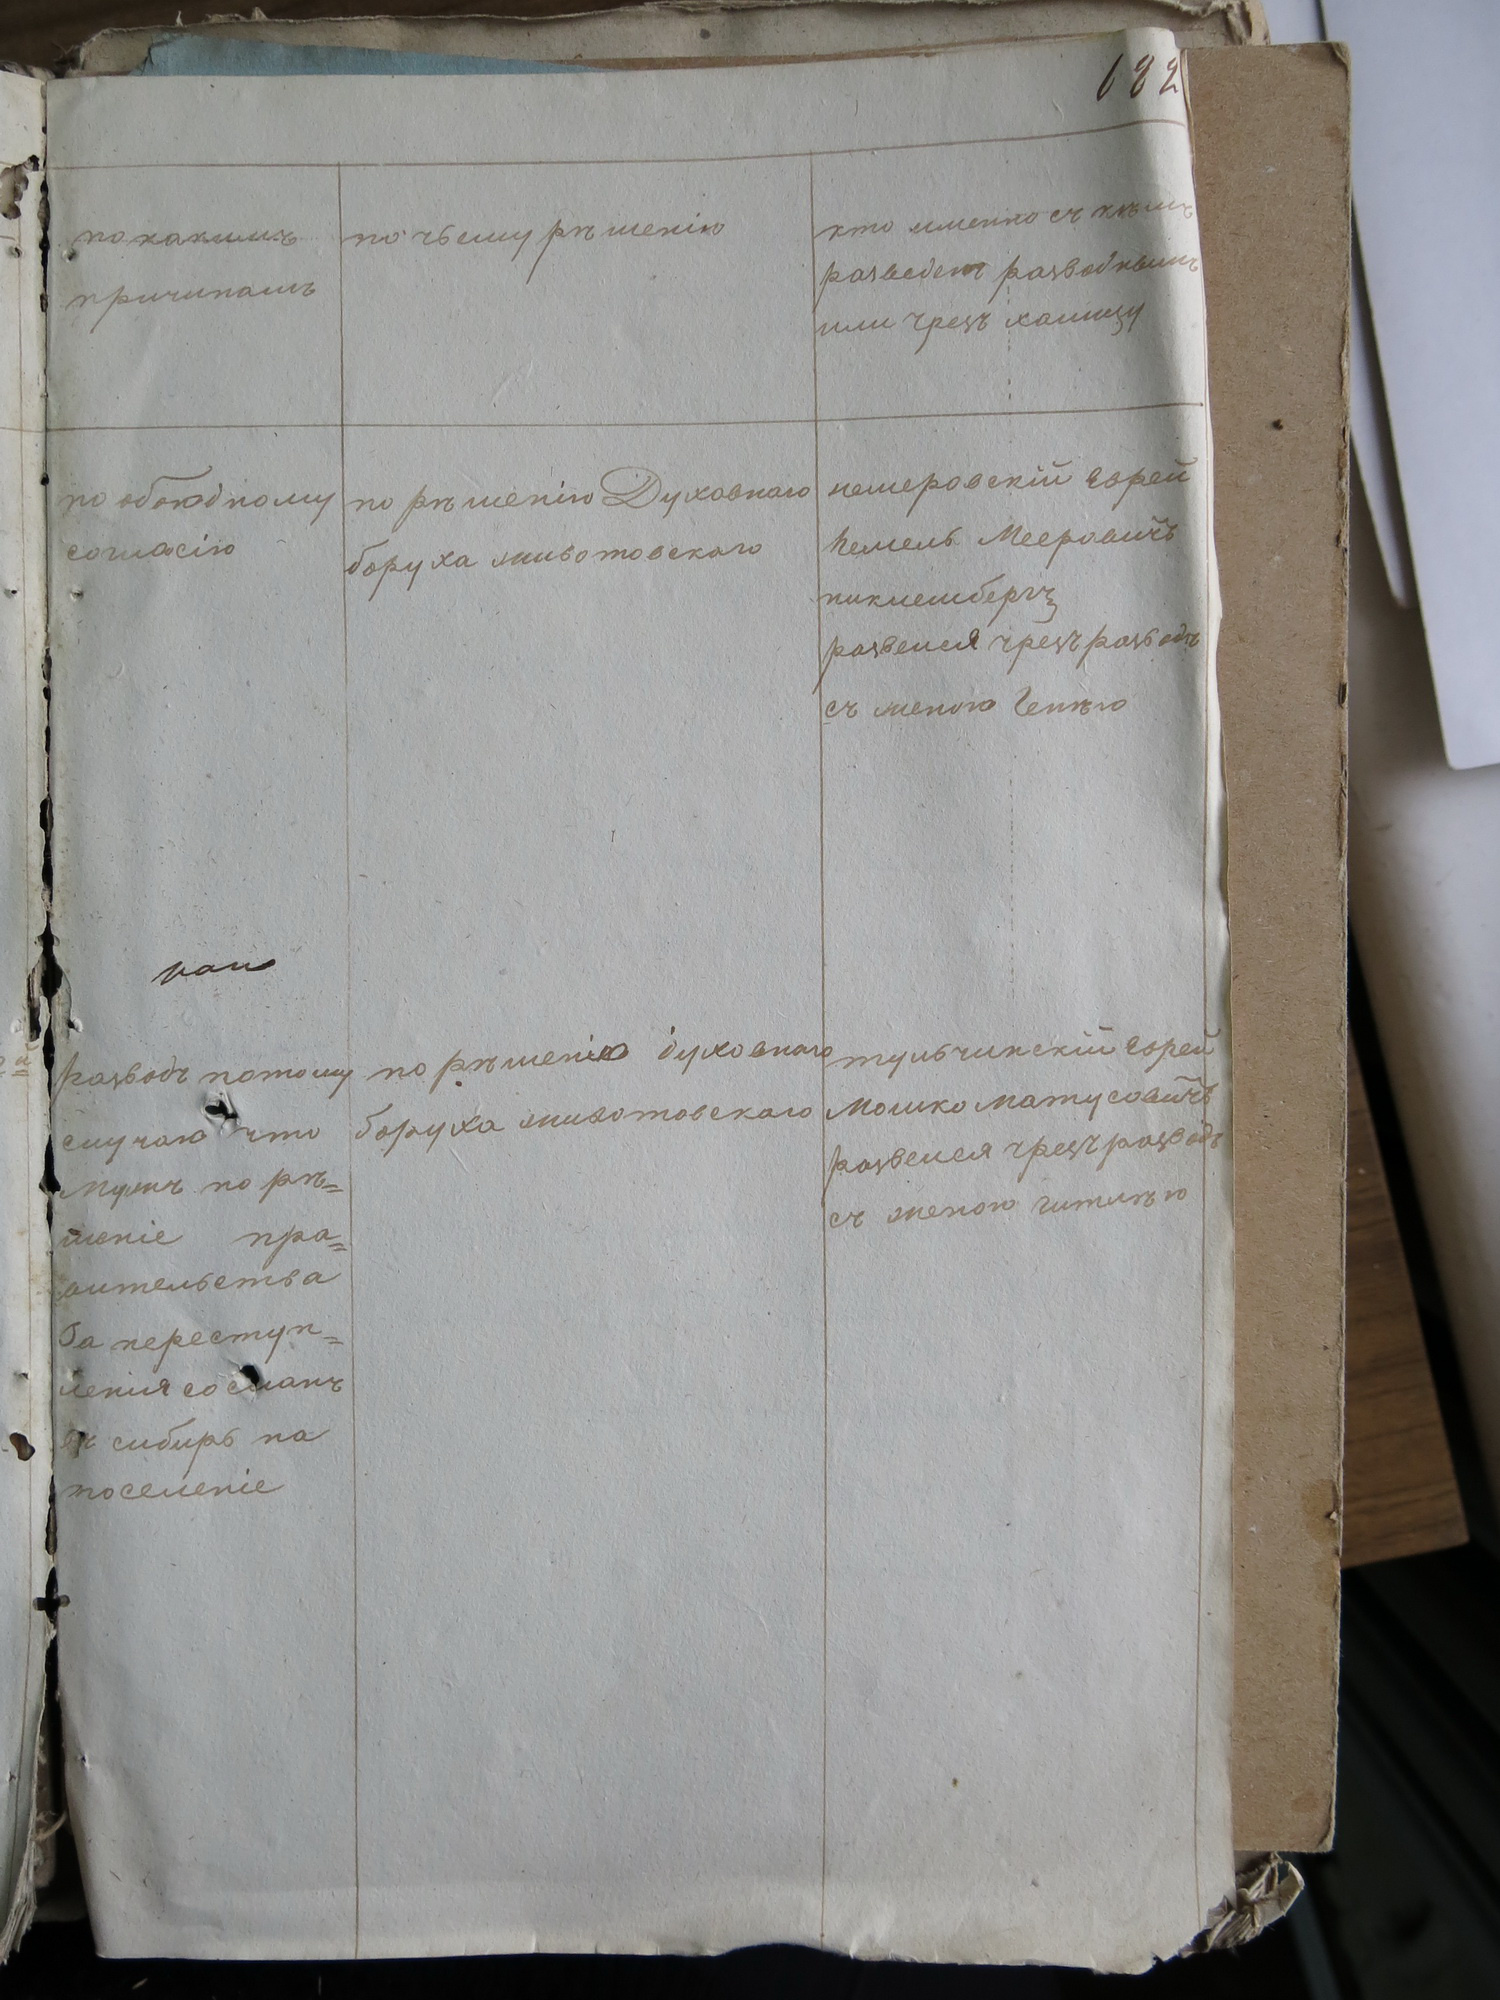 682
по какимъ
причинамъ
по чьему рѣшенію
кто именно съ кѣмъ
разведенъ разводнымъ
или чрезъ халицу
по обоюдному
согласію
по рѣшенію Духовнаго
боруха животовскаго
немеровскій еврей
Кемель Мееровичъ
развелся чрезъ разводъ
съ женою Генею
разводъ потому
случаю что
мужъ по рѣ=
шеніе пра=
вительства
За переступ=
ленія сосланъ
въ сибирь на
поселеніе
по рѣшенію духовнаго
боруха животовскаго
тульчинскій еврей
Мошко Матусовичъ
развелся чрезъ разводъ
съ женою